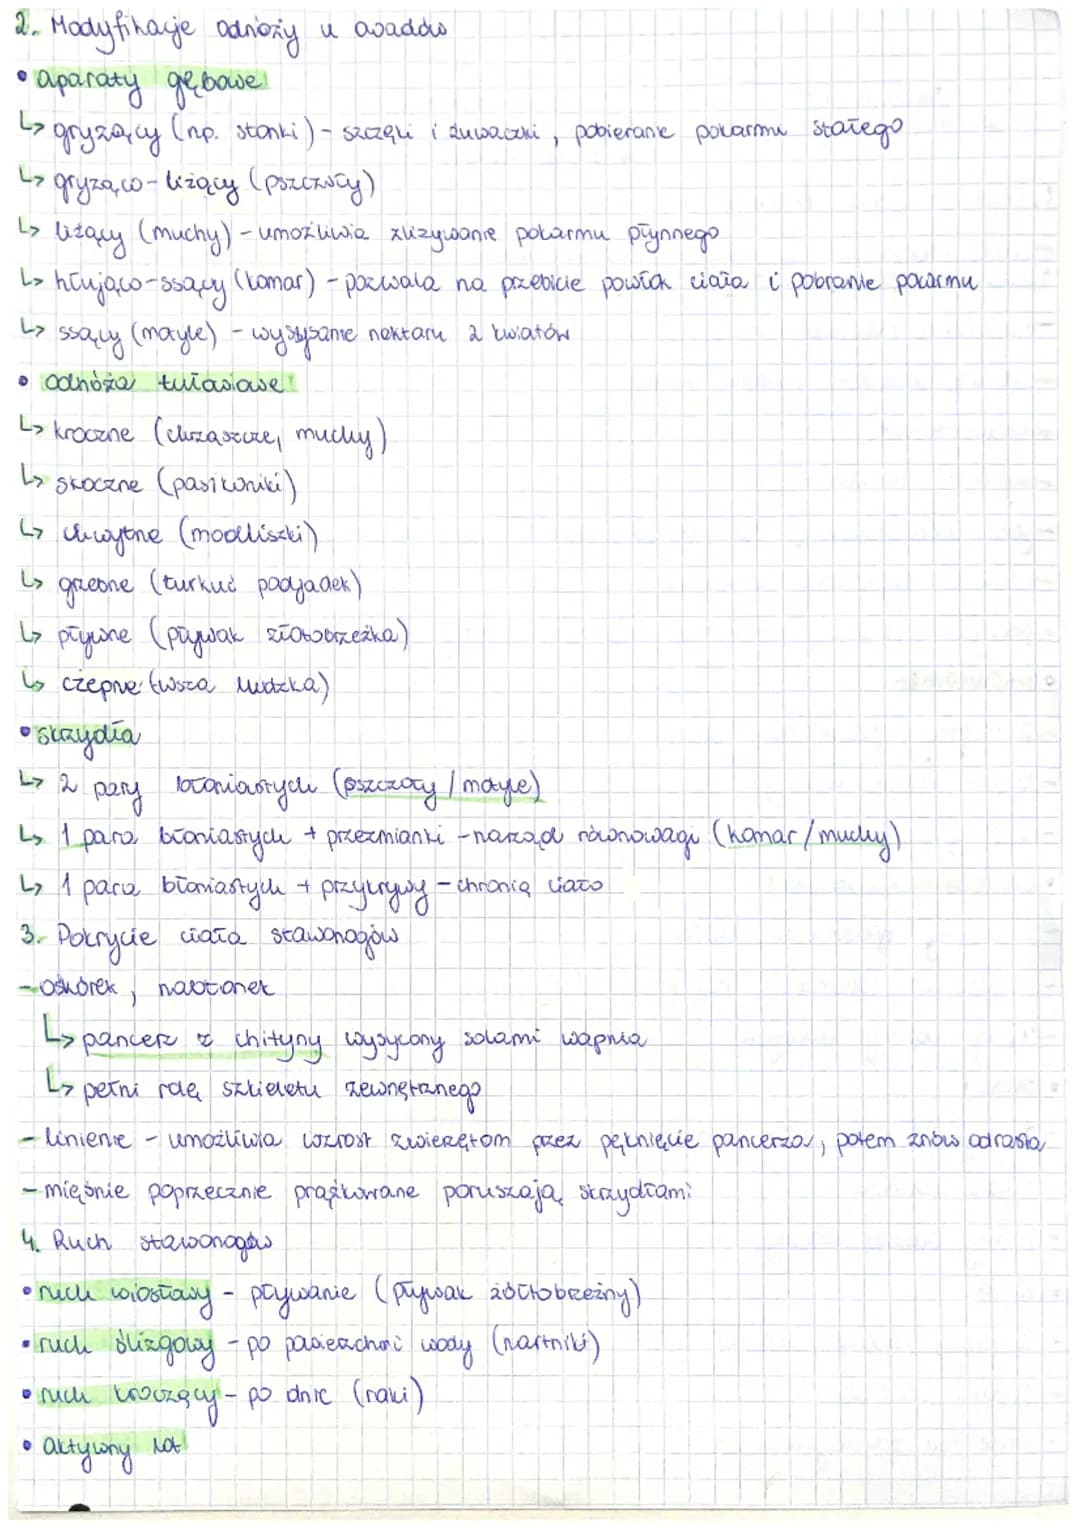 2. Modyfikacje odnóży u owadów
• aparaty gębowe
↳ gryzący (np. stonki) - szczęki i żuwaczki, pobieranie pokarmu stałego
↳ gryząco-liżący (pszczoły)
↳ liżący (muchy) - umożliwia zlizywanie pokarmu płynnego
↳ kłująco-ssący (komar) - pozwala na przebicie powłok ciała i pobranie pokarmu
↳ ssący (motyle) - wysysanie nektaru z kwiatów
• odnóża tułowiowe
↳ kroczne (chrząszcze, muchy)
↳ skoczne (pasikoniki)
↳ chwytne (modliszki)
↳ grzebne (turkuć podjadek)
↳ pływne (pływak żłotobrzeżka)
↳ czepne (wsza ludzka)
• skrzydła
↳ 2 pary błoniastych (pszczoły / motyle)
↳ 1 para błoniastych + przezmianki - narząd równowagi (komar/muchy)
↳ 1 para błoniastych + przykrywy - chronią ciało
3. Pokrycie ciała stawonogów
- oskórek, nabłonek
↳ pancerz z chityny wysycony solami wapnia
↳ pełni rolę szkieletu zewnętrznego
- linienie - umożliwia wzrost zwierzętom przez pęknięcie pancerza, potem znów odrasta
- mięśnie poprzecznie prążkowane poruszają skrzydłami
4. Ruch stawonogów
• ruch wiosłowy - pływanie (pływak żółtobrzeżny)
• ruch ślizgowy - po powierzchni wody (nartniki)
• ruch kroczący - po dnie (raki)
• aktywny lot